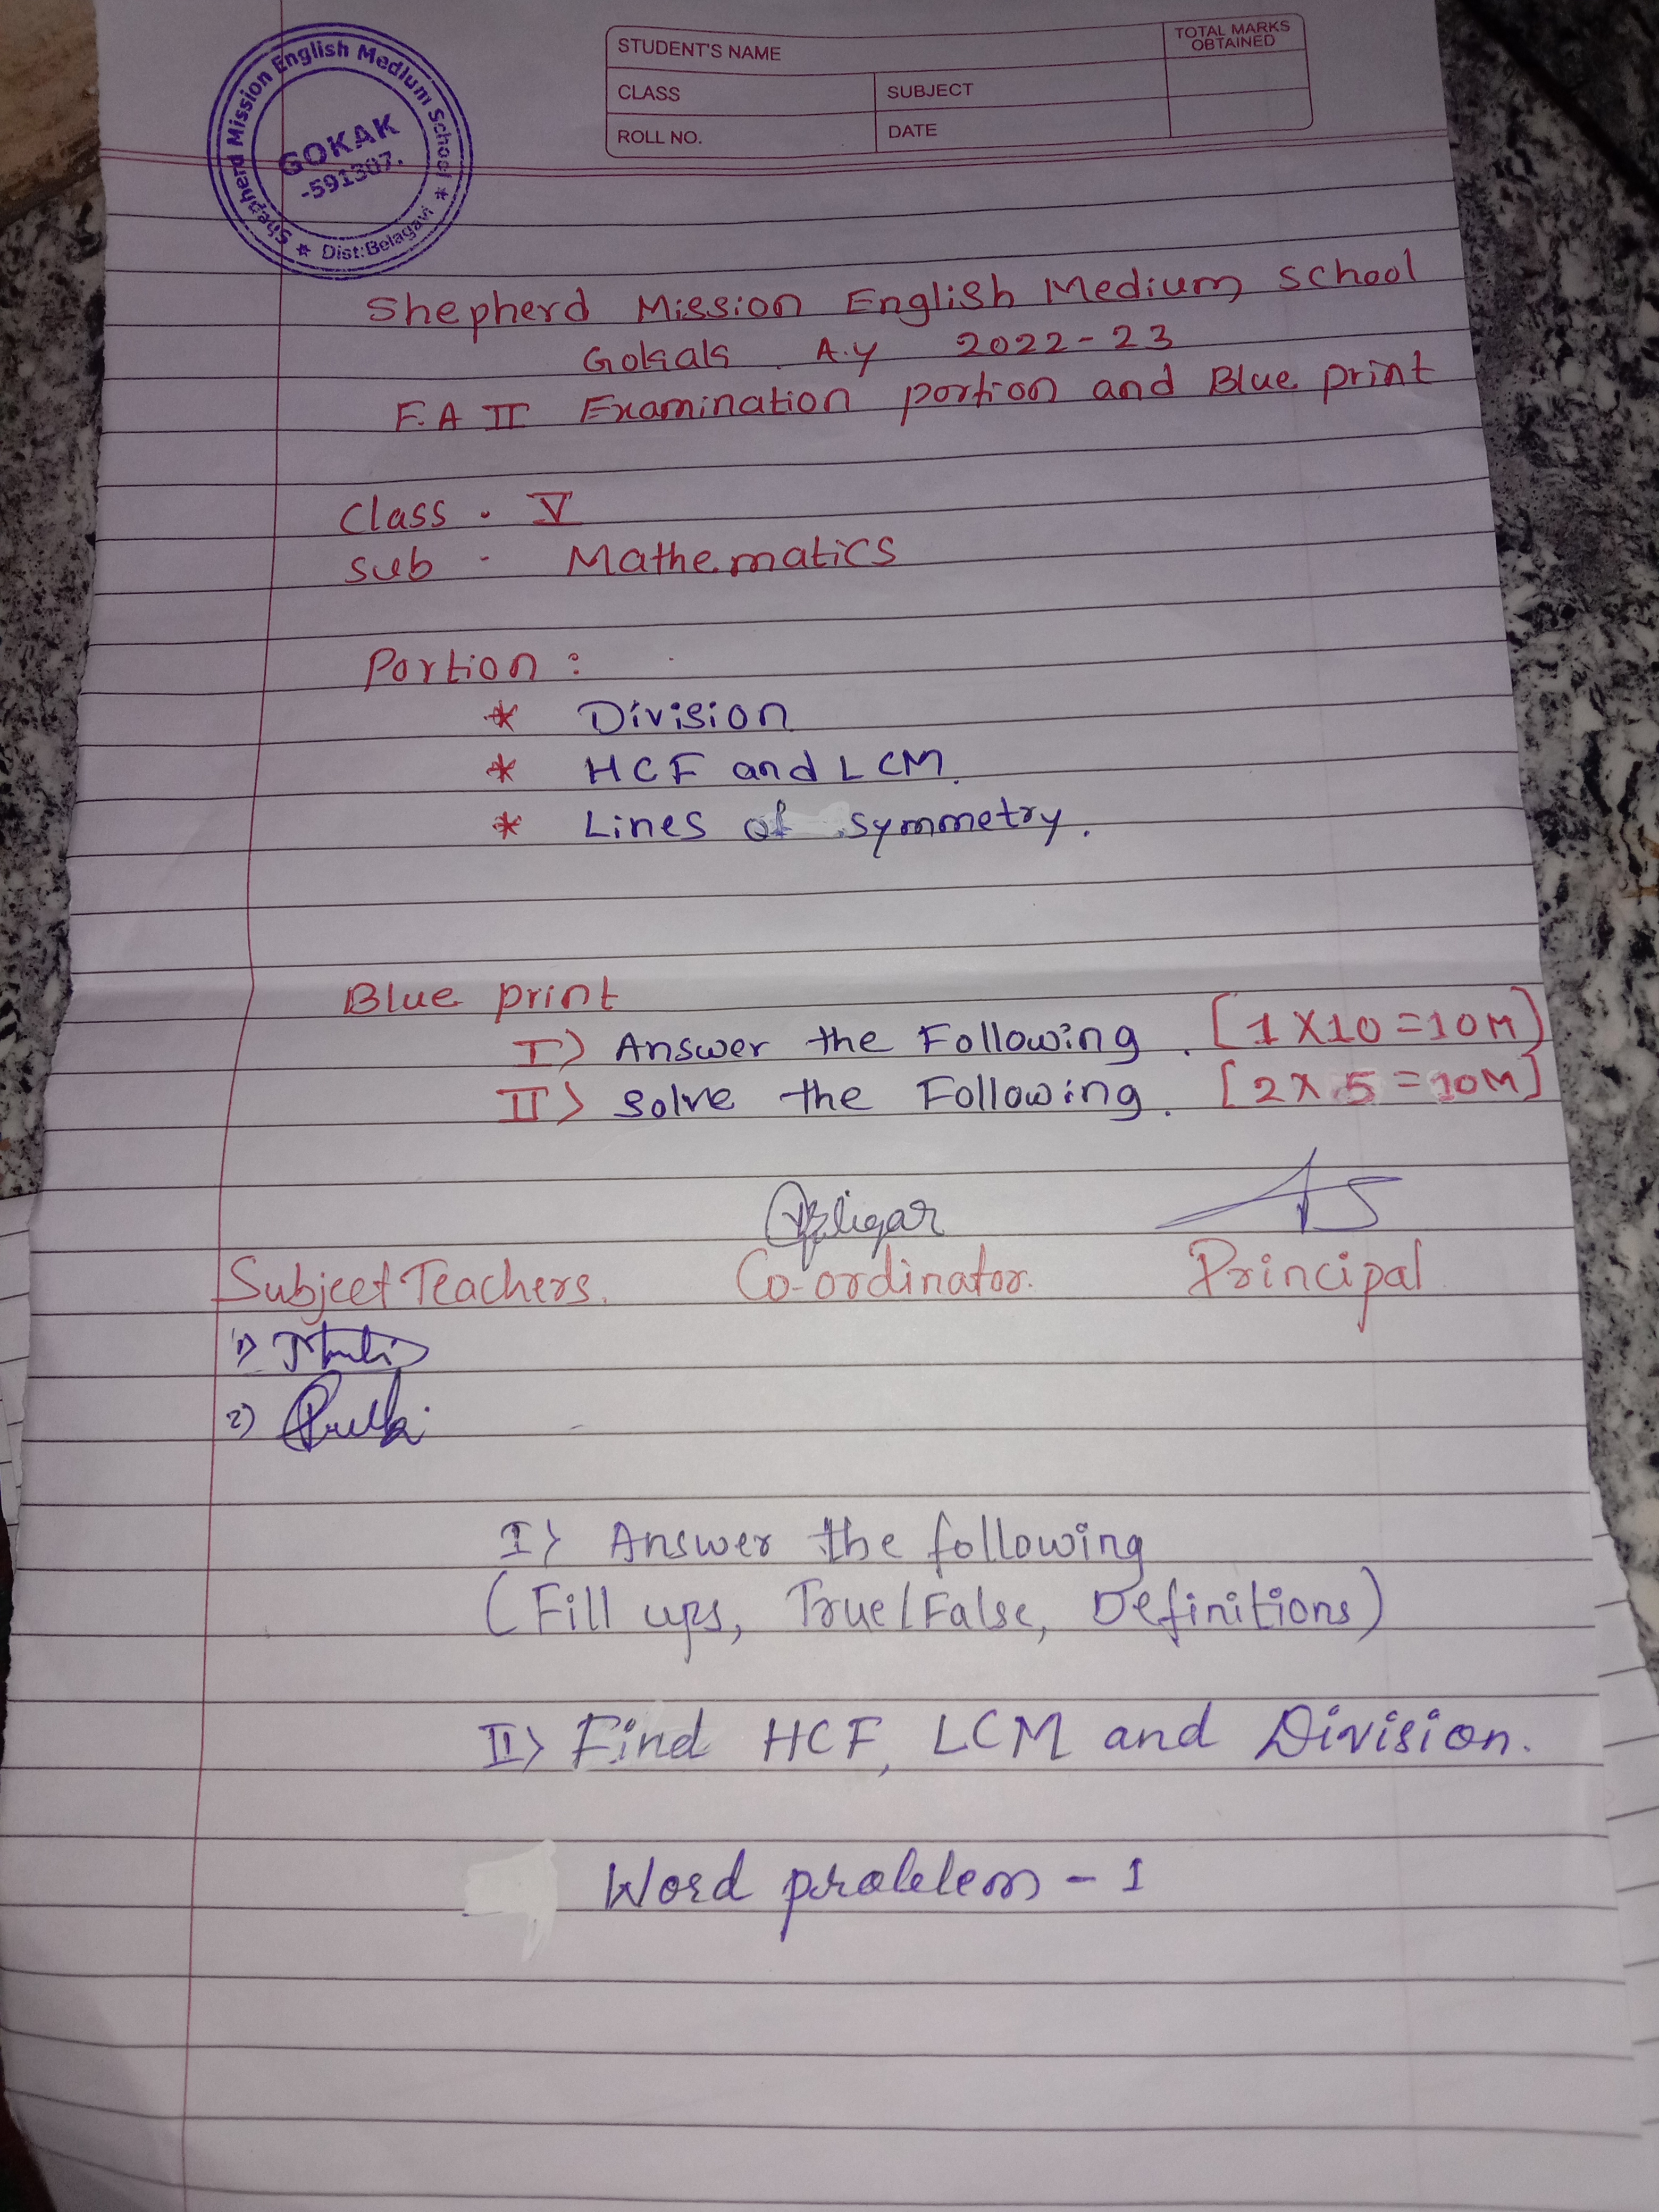 Shepherd Mission English Medium School
* Dist:Belagavi *
GOKAK
-591307.
STUDENT'S NAME
TOTAL MARKS OBTAINED
CLASS
SUBJECT
ROLL NO.
DATE
Shepherd Mission English Medium School
Gokak A.y 2022-23
F.A II Examination portion and Blue print
Class . V
Sub - Mathematics
Portion :
* Division
* HCF and LCM.
* Lines of symmetry.
Blue print
I) Answer the Following. [1 X 10 = 10M)
II) Solve the Following. [2 X 5 = 10M]
Subject Teachers. Co-ordinator. Principal
1)
2)
I) Answer the following
(Fill ups, True/False, Definitions)
II) Find HCF, LCM and Division.
Word problem - 1